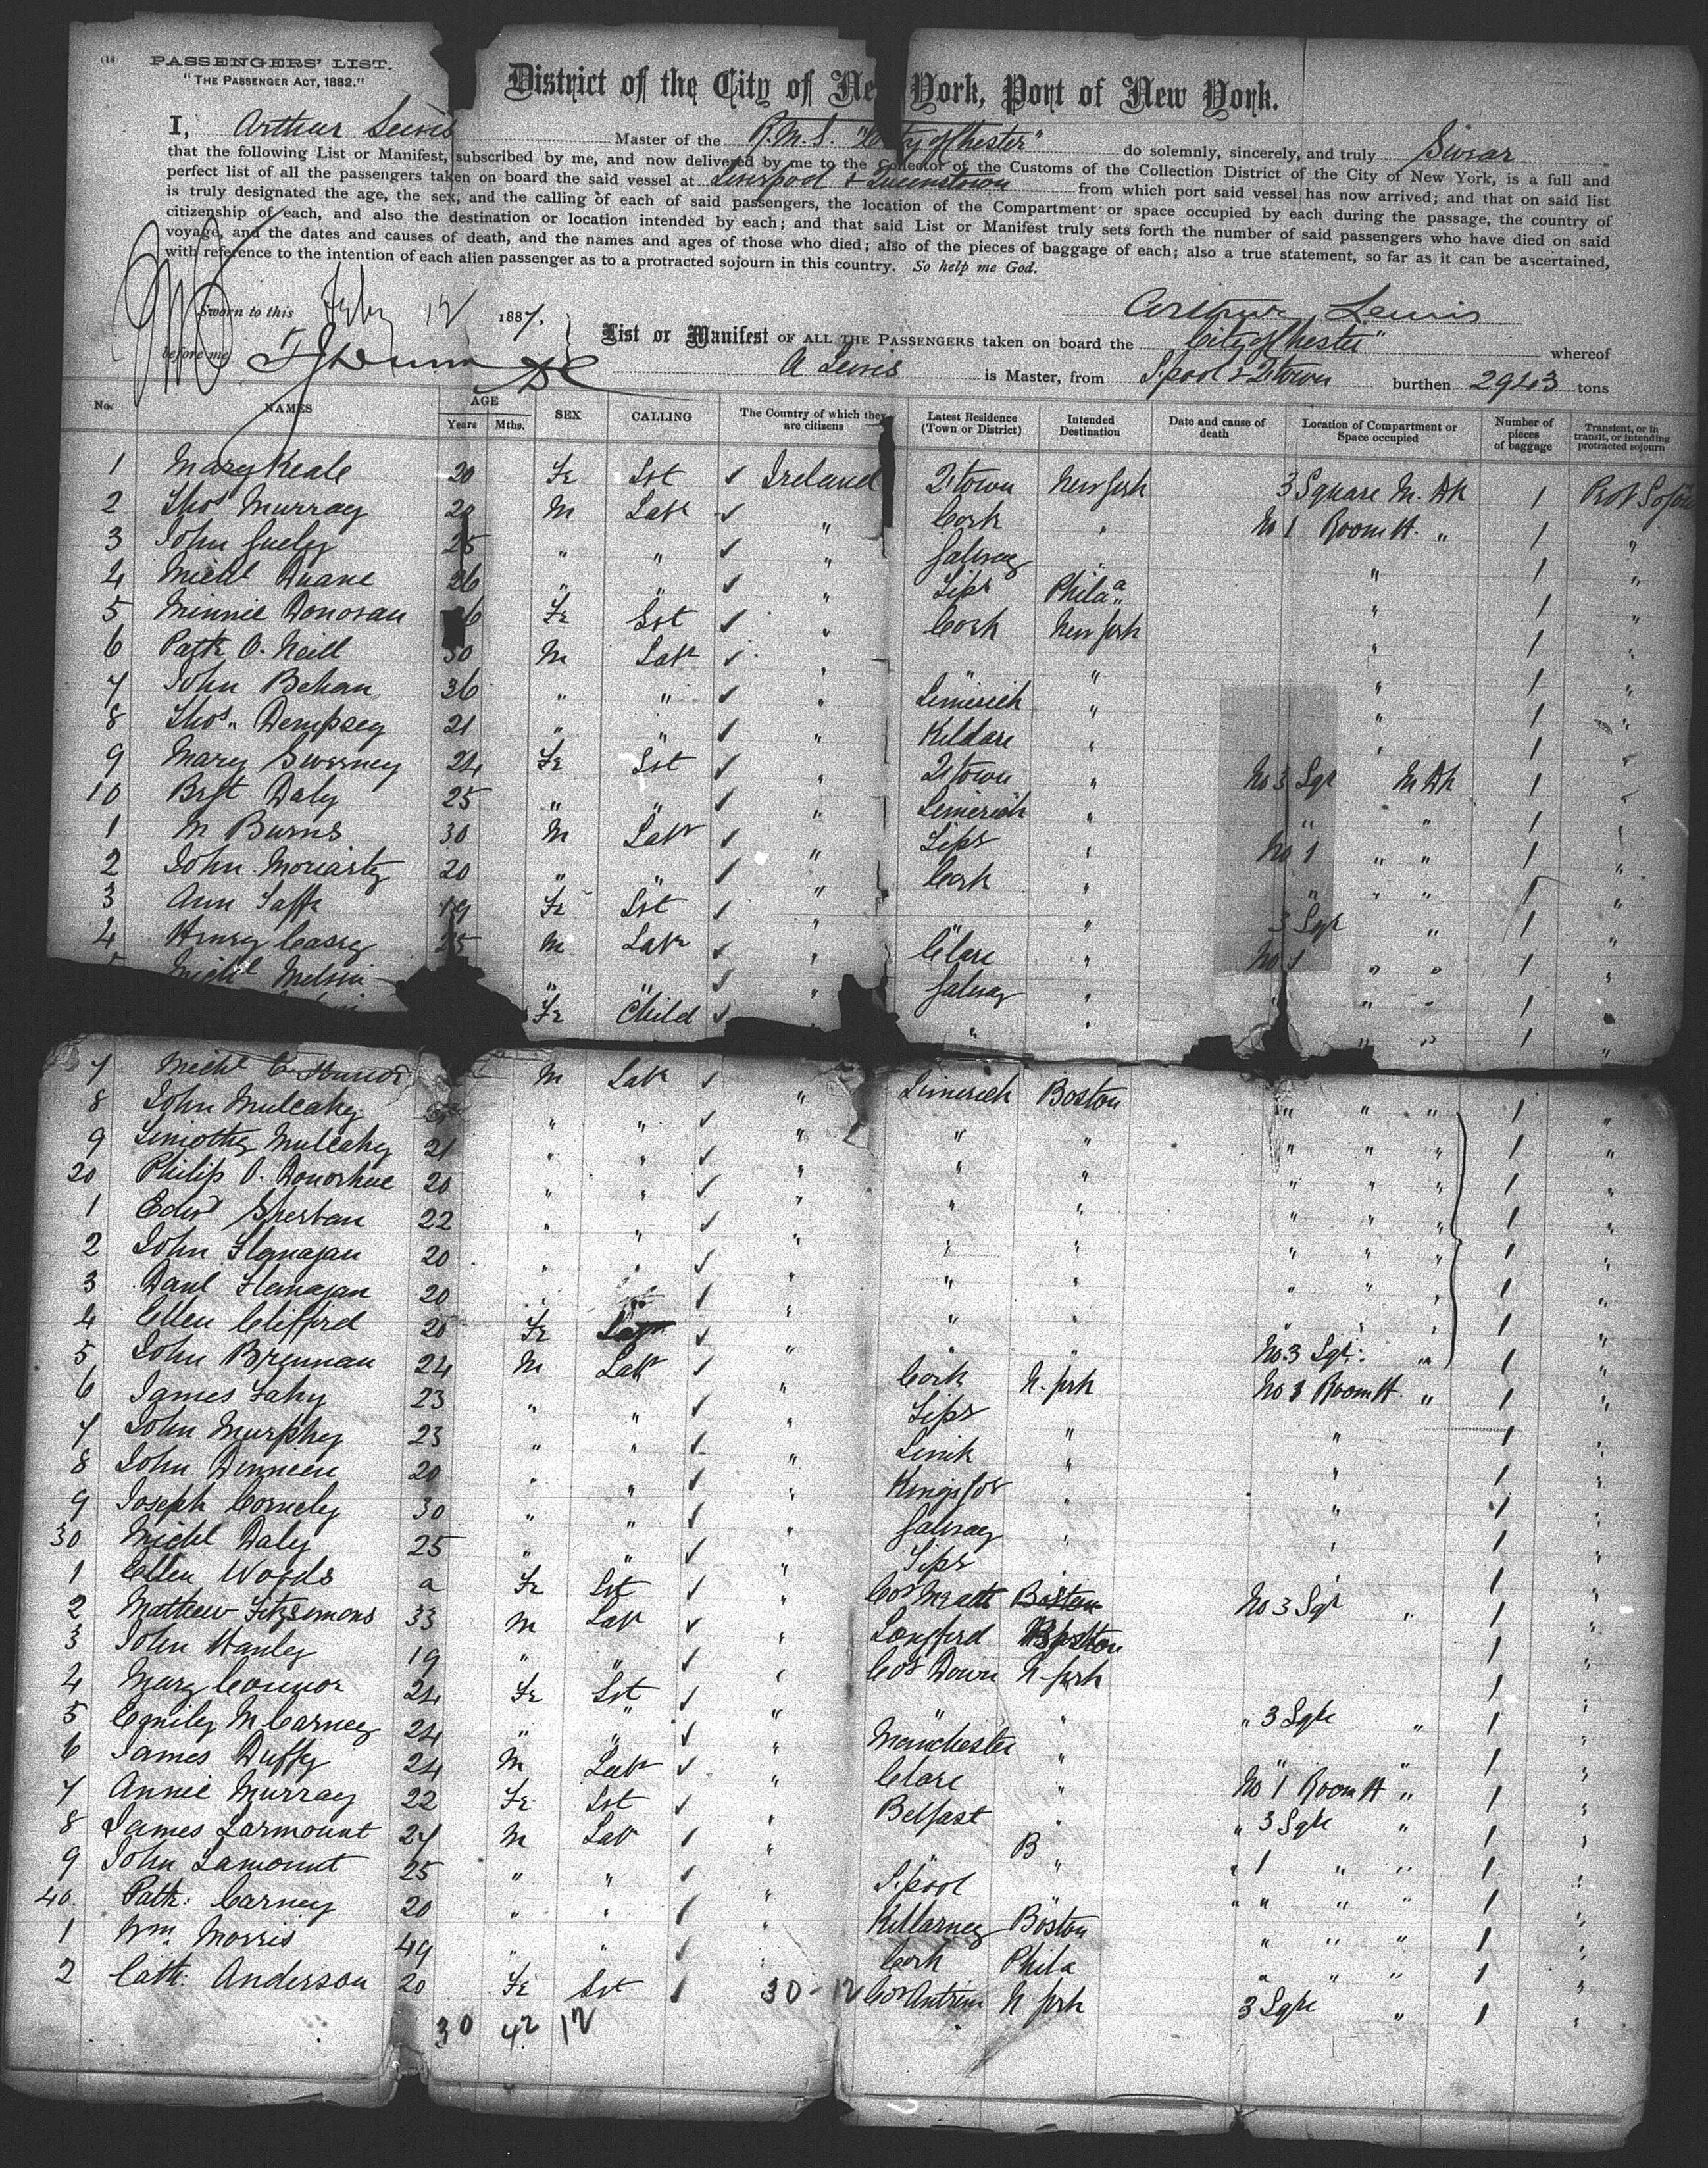 PASSENGERS' LIST.
"THE PASSENGER ACT, 1882."
District of the City of New York, Port of New York.
I, Arthur Lewis Master of the R.M.S. "City of Chester" do solemnly, sincerely, and truly Swear
that the following List or Manifest, subscribed by me, and now delivered by me to the Collector of the Customs of the Collection District of the City of New York, is a full and
perfect list of all the passengers taken on board the said vessel at Liverpool & Queenstown from which port said vessel has now arrived; and that on said list
is truly designated the age, the sex, and the calling of each of said passengers, the location of the Compartment or space occupied by each during the passage, the country of
citizenship of each, and also the destination or location intended by each; and that said List or Manifest truly sets forth the number of said passengers who have died on said
voyage, and the dates and causes of death, and the names and ages of those who died; also of the pieces of baggage of each; also a true statement, so far as it can be ascertained,
with reference to the intention of each alien passenger as to a protracted sojourn in this country. So help me God.
Sworn to this Feby 12 1887. Arthur Lewis
before me
List or Manifest OF ALL THE PASSENGERS taken on board the "City of Chester" whereof
A Lewis is Master, from L'pool & Q'town burthen 2943 tons
No. NAMES AGE Years Mths. SEX CALLING The Country of which they are citizens Latest Residence (Town or District) Intended Destination Date and cause of death Location of Compartment or Space occupied Number of pieces of baggage Transient, or in transit, or intending protracted sojourn
1 Mary Keale 20 Fe Sst ✓ Ireland Q'town New York 3 Square M. Dk 1
2 Thos Murray 20 M Labr ✓ " Cork " No 1 Room H. " 1 "
3 John 25 " " ✓ " Galway " " 1 "
4 Michl Duane 26 " " ✓ " Tipr Phila " 1 "
5 Minnie Donovan 6 Fe Sst ✓ " Cork New York " 1 "
6 Patk O. Neill 30 M Labr ✓ " " " " 1 "
7 John Behan 36 " " ✓ " Limerick " " 1 "
8 Thos. Dempsey 21 " " ✓ " Kildare " " 1 "
9 Mary Sweeney 24 Fe Sst ✓ " Q'town " No 3 Sqr M Dk 1 "
10 Bgt Daly 25 " " ✓ " Limerick " " " 1 "
1 M Burns 30 M Labr ✓ " Tipr " No 1 " " 1 "
2 John Moriarty 20 " " ✓ " Cork " " " " 1 "
3 Ann 19 Fe Sst ✓ " " " 3 Sqr " 1 "
4 Henry Casey 25 M Labr ✓ " Clare " No 1 " " 1 "
Michl " " ✓ " Galway " " " " 1 "
Fe Child ✓ " " " " " 1 "
7 Michl M Labr ✓ " Limerick Boston " " " 1 "
8 John Mulcahy " " ✓ " " " " " " 1 "
9 Timothy Mulcahy 21 " " ✓ " " " " " " 1 "
20 Philip O. Donoshue 20 " " ✓ " " " " " " 1 "
1 Edwd Sherban 22 " " ✓ " " " " " " 1 "
2 John Flanagan 20 " " ✓ " " " " " " 1 "
3 Danl Flanagan 20 " " ✓ " " " " " " 1 "
4 Ellen Clifford 20 Fe ✓ " " " No 3 Sqr " 1 "
5 John Brennan 24 M Labr ✓ " Cork N. York No 1 Room H. " 1 "
6 James Fahy 23 " " ✓ " Tipr " " 1 "
7 John Murphy 23 " " ✓ " " " 1 "
8 John Dinneen 20 " " ✓ " " " 1 "
9 Joseph 30 " " ✓ " Galway " " 1 "
30 Michl Daly 25 " " ✓ " Tipr " " 1 "
1 Ellen Woods a Fe Sst ✓ " Coy Meath Boston No 3 Sqr " 1 "
2 Mathew Fitzsimons 33 M Labr ✓ " Longford Boston 1 "
3 John Hanley 19 " " ✓ " Coy Down N. York 1 "
4 Mary Connor 24 Fe Sst ✓ " " " " 3 Sqre " 1 "
5 Emily McCarney 24 " " ✓ " Manchester " " " 1 "
6 James Duffy 24 M Labr ✓ " Clare " No 1 Room H " 1 "
7 Annie Murray 22 Fe Sst ✓ " Belfast " " 3 Sqre " 1 "
8 James Larmount 27 M Labr ✓ " B " " 1 " " 1 "
9 John Lamount 25 " " ✓ " L'pool " " " " 1 "
40. Patk: Carney 20 " " ✓ " Killarney Boston " " " 1 "
1 Wm. Morris 49 " " ✓ " Cork Phila " " " 1 "
2 Cath: Anderson 20 Fe Sst ✓ 30 - 12 Coy Antrim N York 3 Sqre " 1 "
30 42 12